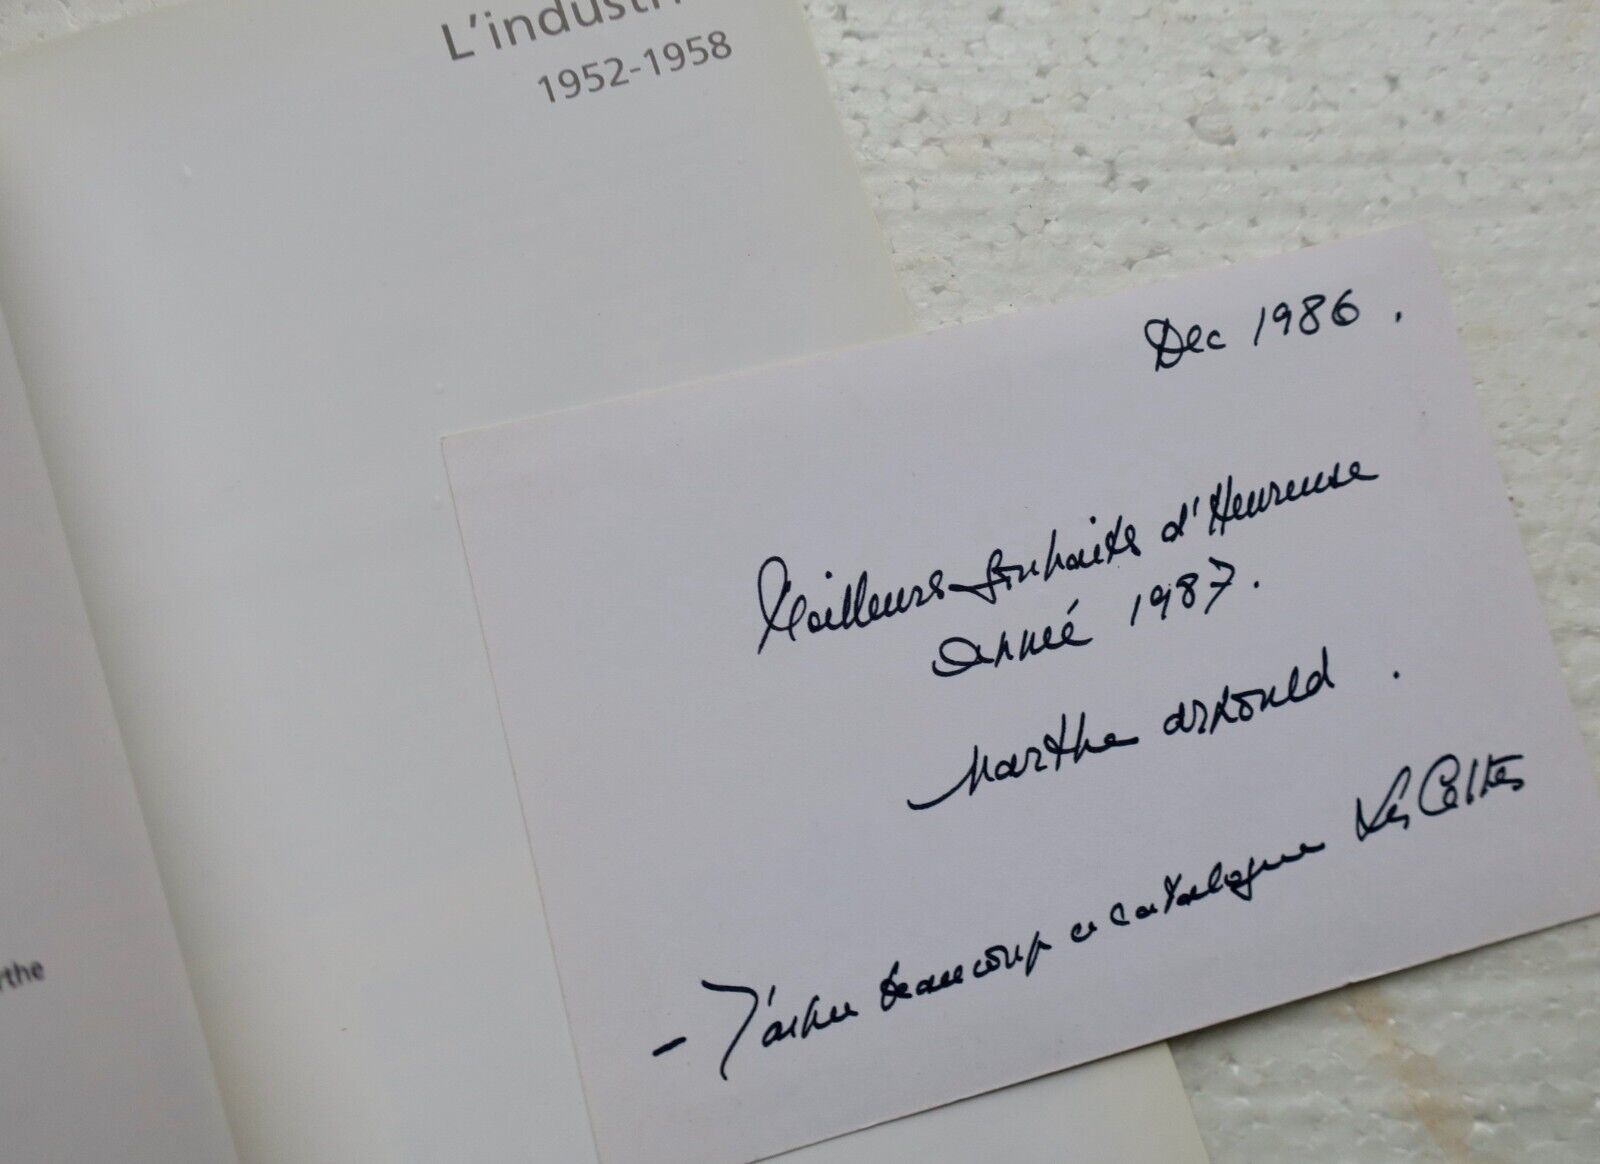 L'industri
1952-1958
rthe
Dec 1986.
Meilleurs souhaits d'Heureuse
Année 1987.
Marthe Arnould.
- J'aime beaucoup ce catalogue Les Celtes